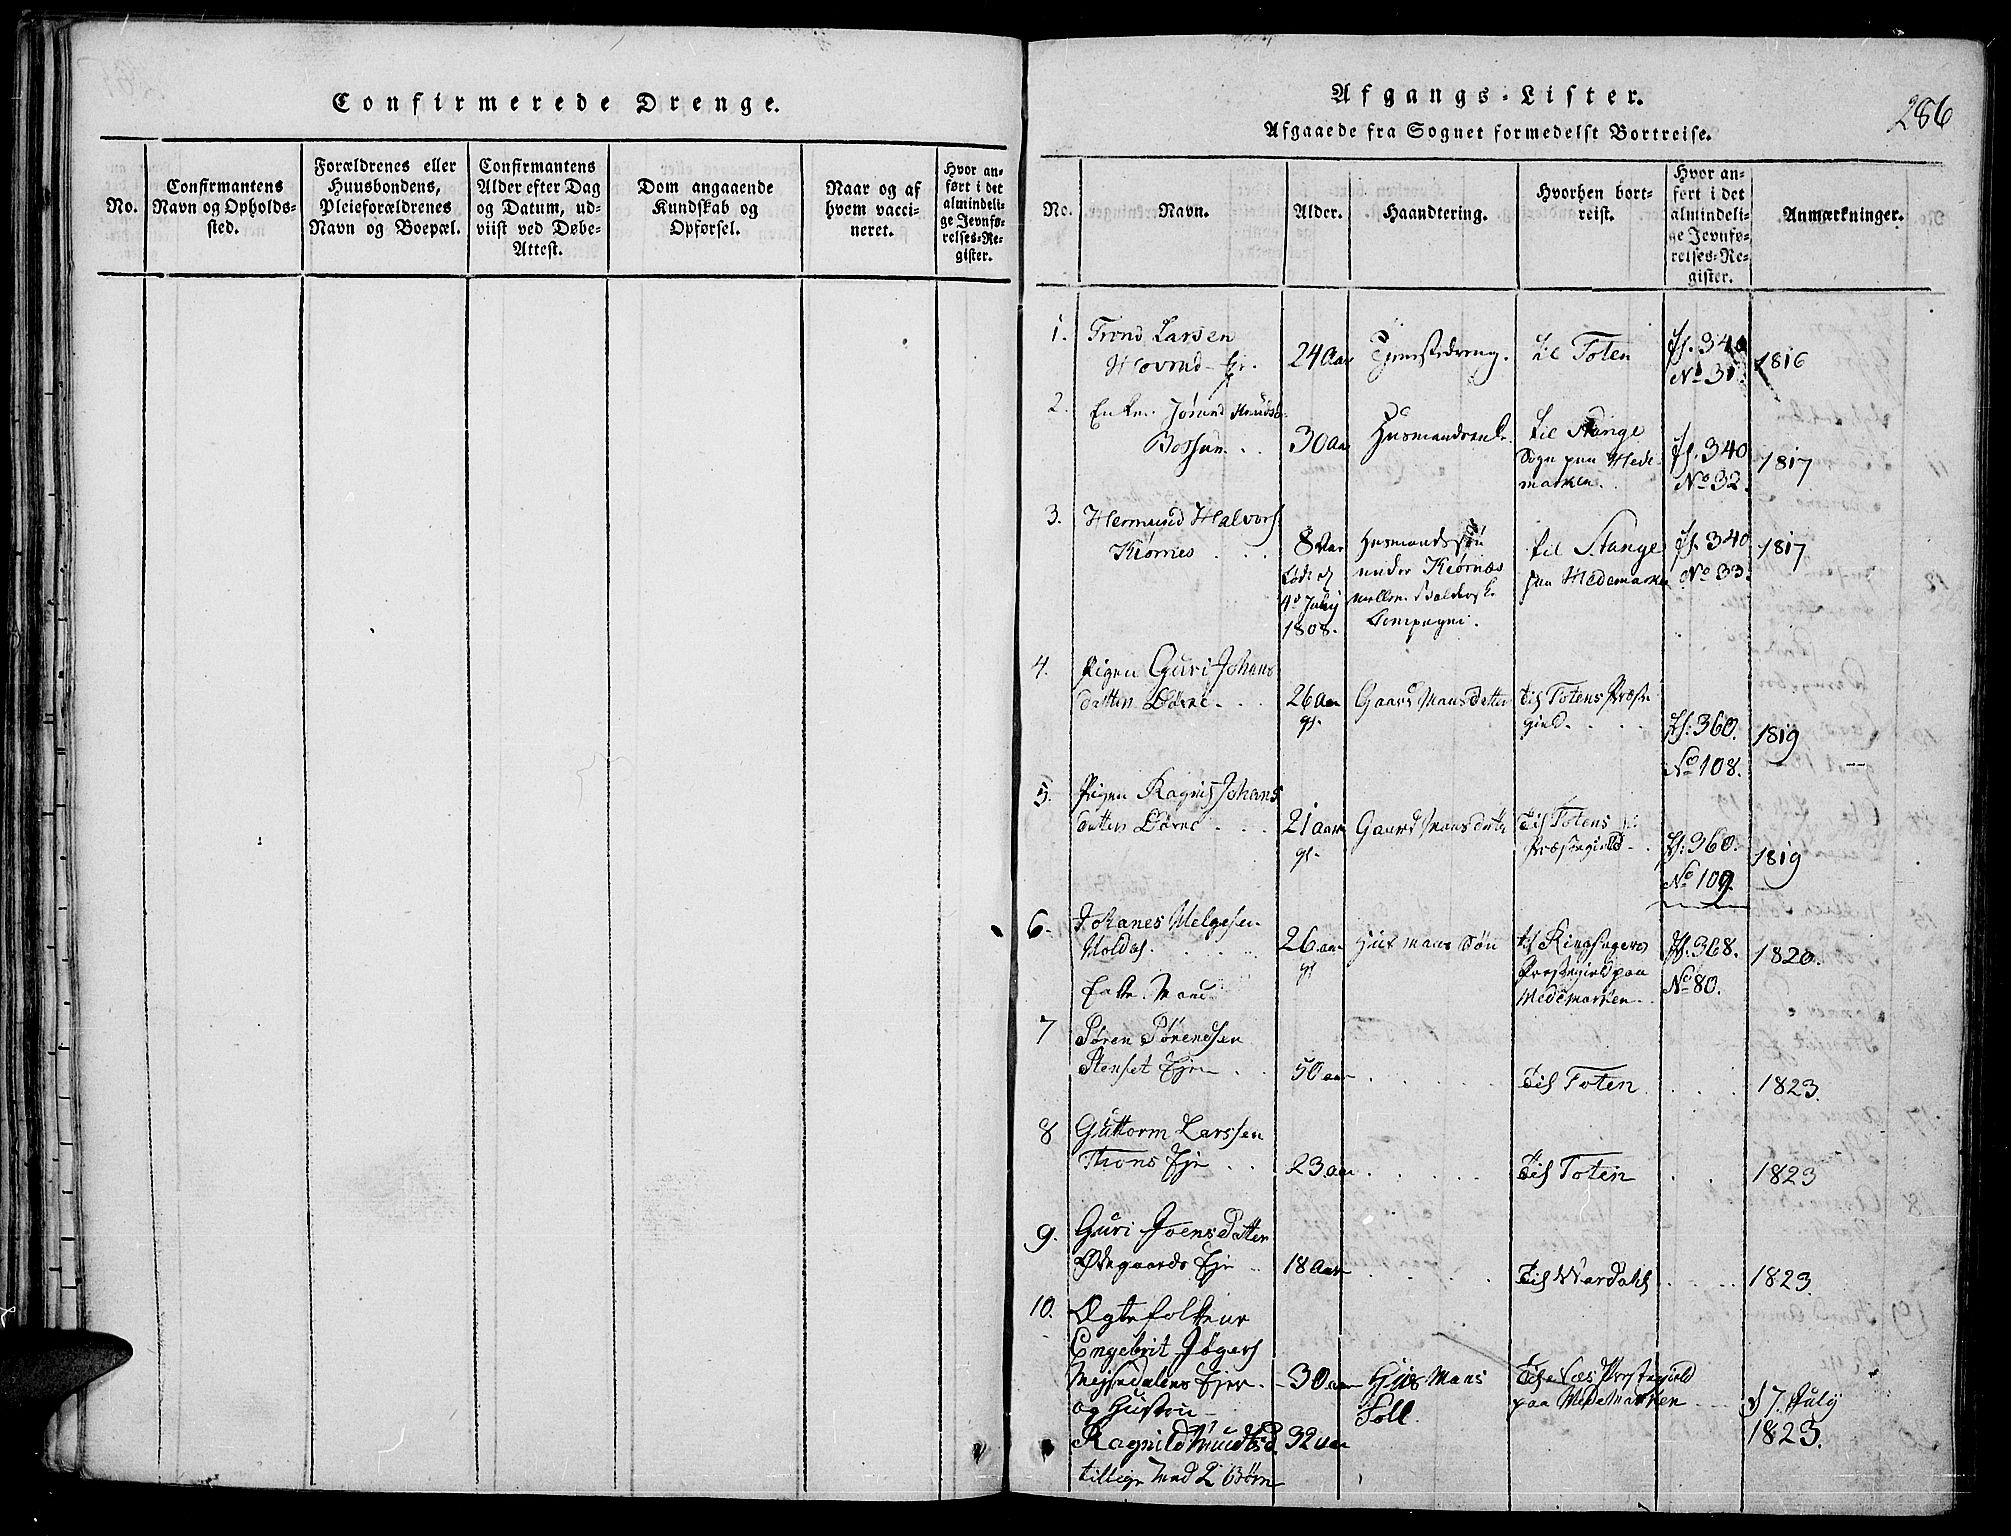 Confirmerede Drenge.
No.
Confirmantens
Navn og Opholds-
sted.
Forældrenes eller
Huusbondens,
Pleieforældrenes
Navn og Boepæl.
Confirmantens
Alder efter Dag
og Datum, ud-
viist ved Døbe-
Attest.
Dom angaaende
Kundskab og
Opførsel.
Naar og af
hvem vacci-
neret.
Hvor an-
ført i det
almindeli-
ge Jevnfø-
relses-Re-
gister.
Afgangs-Lister.
286
Afgaaede fra Sognet formedelst Bortreise.
No.
Navn.
Alder.
Haandtering.
Hvorhen bort-
reist.
Hvor an-
ført i det
almindeli-
ge Jevnfø-
relses-Re-
gister.
Anmærkninger.
1.
Trond Larsen
24 Aar
Tjenestedreng.
til Toten
340
No 31.
1816
2.
Enke Jørend
30 Aar
til Stange
Sogn paa Hede-
marken.
340
No 32.
1817
3.
Hermund Halvors
Kiørnes
8 Aar
4d July
1808.
Husmandssøn
under Kiørnæs
Compagni.
til Stange
paa Hedemarken
340
No 33.
1817
4.
Pigen Guri Johans
datter
26 Aar
Gaardmansdatter
til Totens Præste-
gield
360.
No 108.
1819
5.
Pigen Ragnil Johans
datter
21 aar
Gaardmansdatter
til Totens
Præstegield
360.
No 109.
1819
6.
Johanes Helgesen
26 aar
Husmans Søn
til Ringsagers
Præstegield paa
Hedemarken
368.
No 80.
1820.
7
Søren Sørensen
Stenset Eje
50 aar
til Toten
1823.
8
Guttorm Larssen
Thons Eje
23 aar
til Toten
1823
9.
Guri Joensdatter
Ødegaards Eje
18 Aar
til Wardahl
1823.
10.
Ægtefolkene
Engebrit
30 aar
Husmans
Foll
til Næs Præstegield
paa Hedemarken
17. July
1823.
og Hustru
Ragnild
32 aar
tillige med 2 Børn